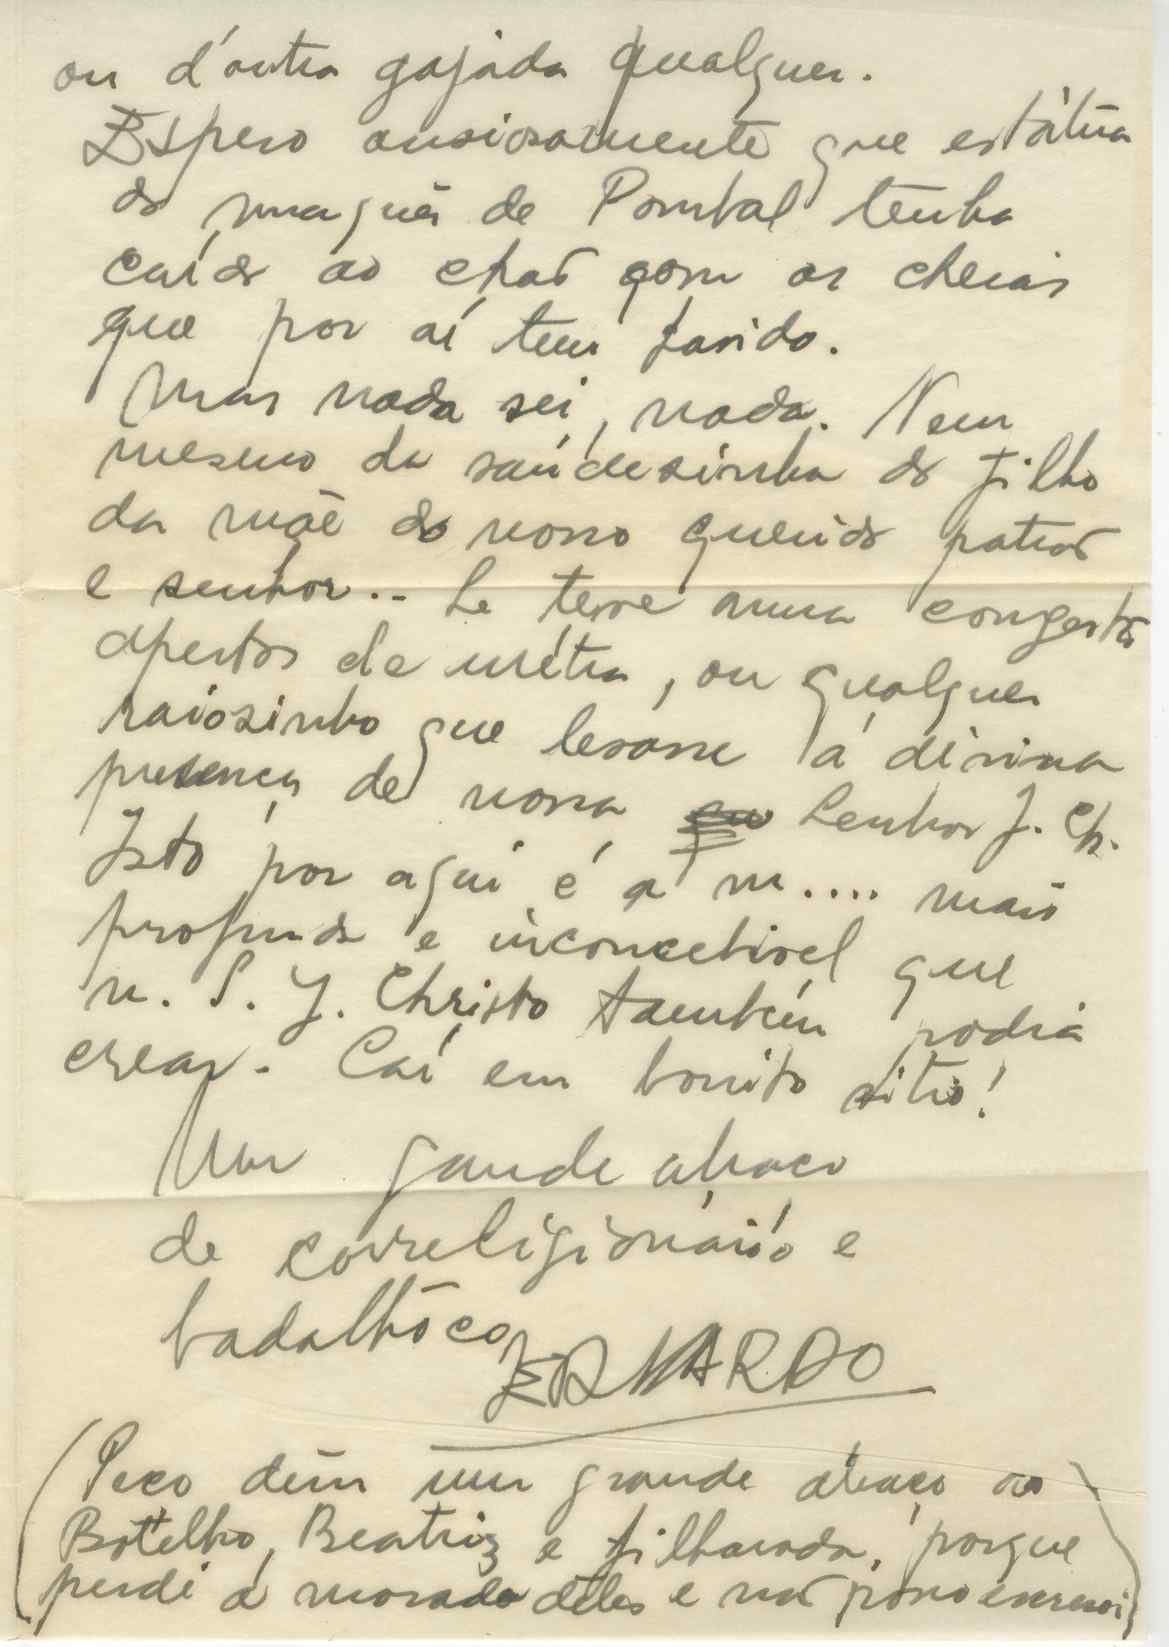 ou d'outra gajada qualquer.
Espero ansiosamente que estátua
do marquês de Pombal tenha
caído ao chão com as cheias
que por aí tem havido.
Mas nada sei, nada. Nem
mesmo da saúdesinha do filho
da mãe do nosso querido patrão
e senhor... Se teve numa congestão
apertos de urétra, ou qualquer
raiosinho que levasse á divina
presença de nosso Senhor J. Ch.
Isto por aqui é a m.... mais
profunda e inconcebivel que
N. S. J. Christo também podia
crear. Caí em bonito sitio!
Um grande abraço
de correligionário e
badalhôco
BERNARDO
(Peço dêm um grande abraço ao
Botelho, Beatriz e filharada, porque
perdi a morada dêles e não posso escrever)